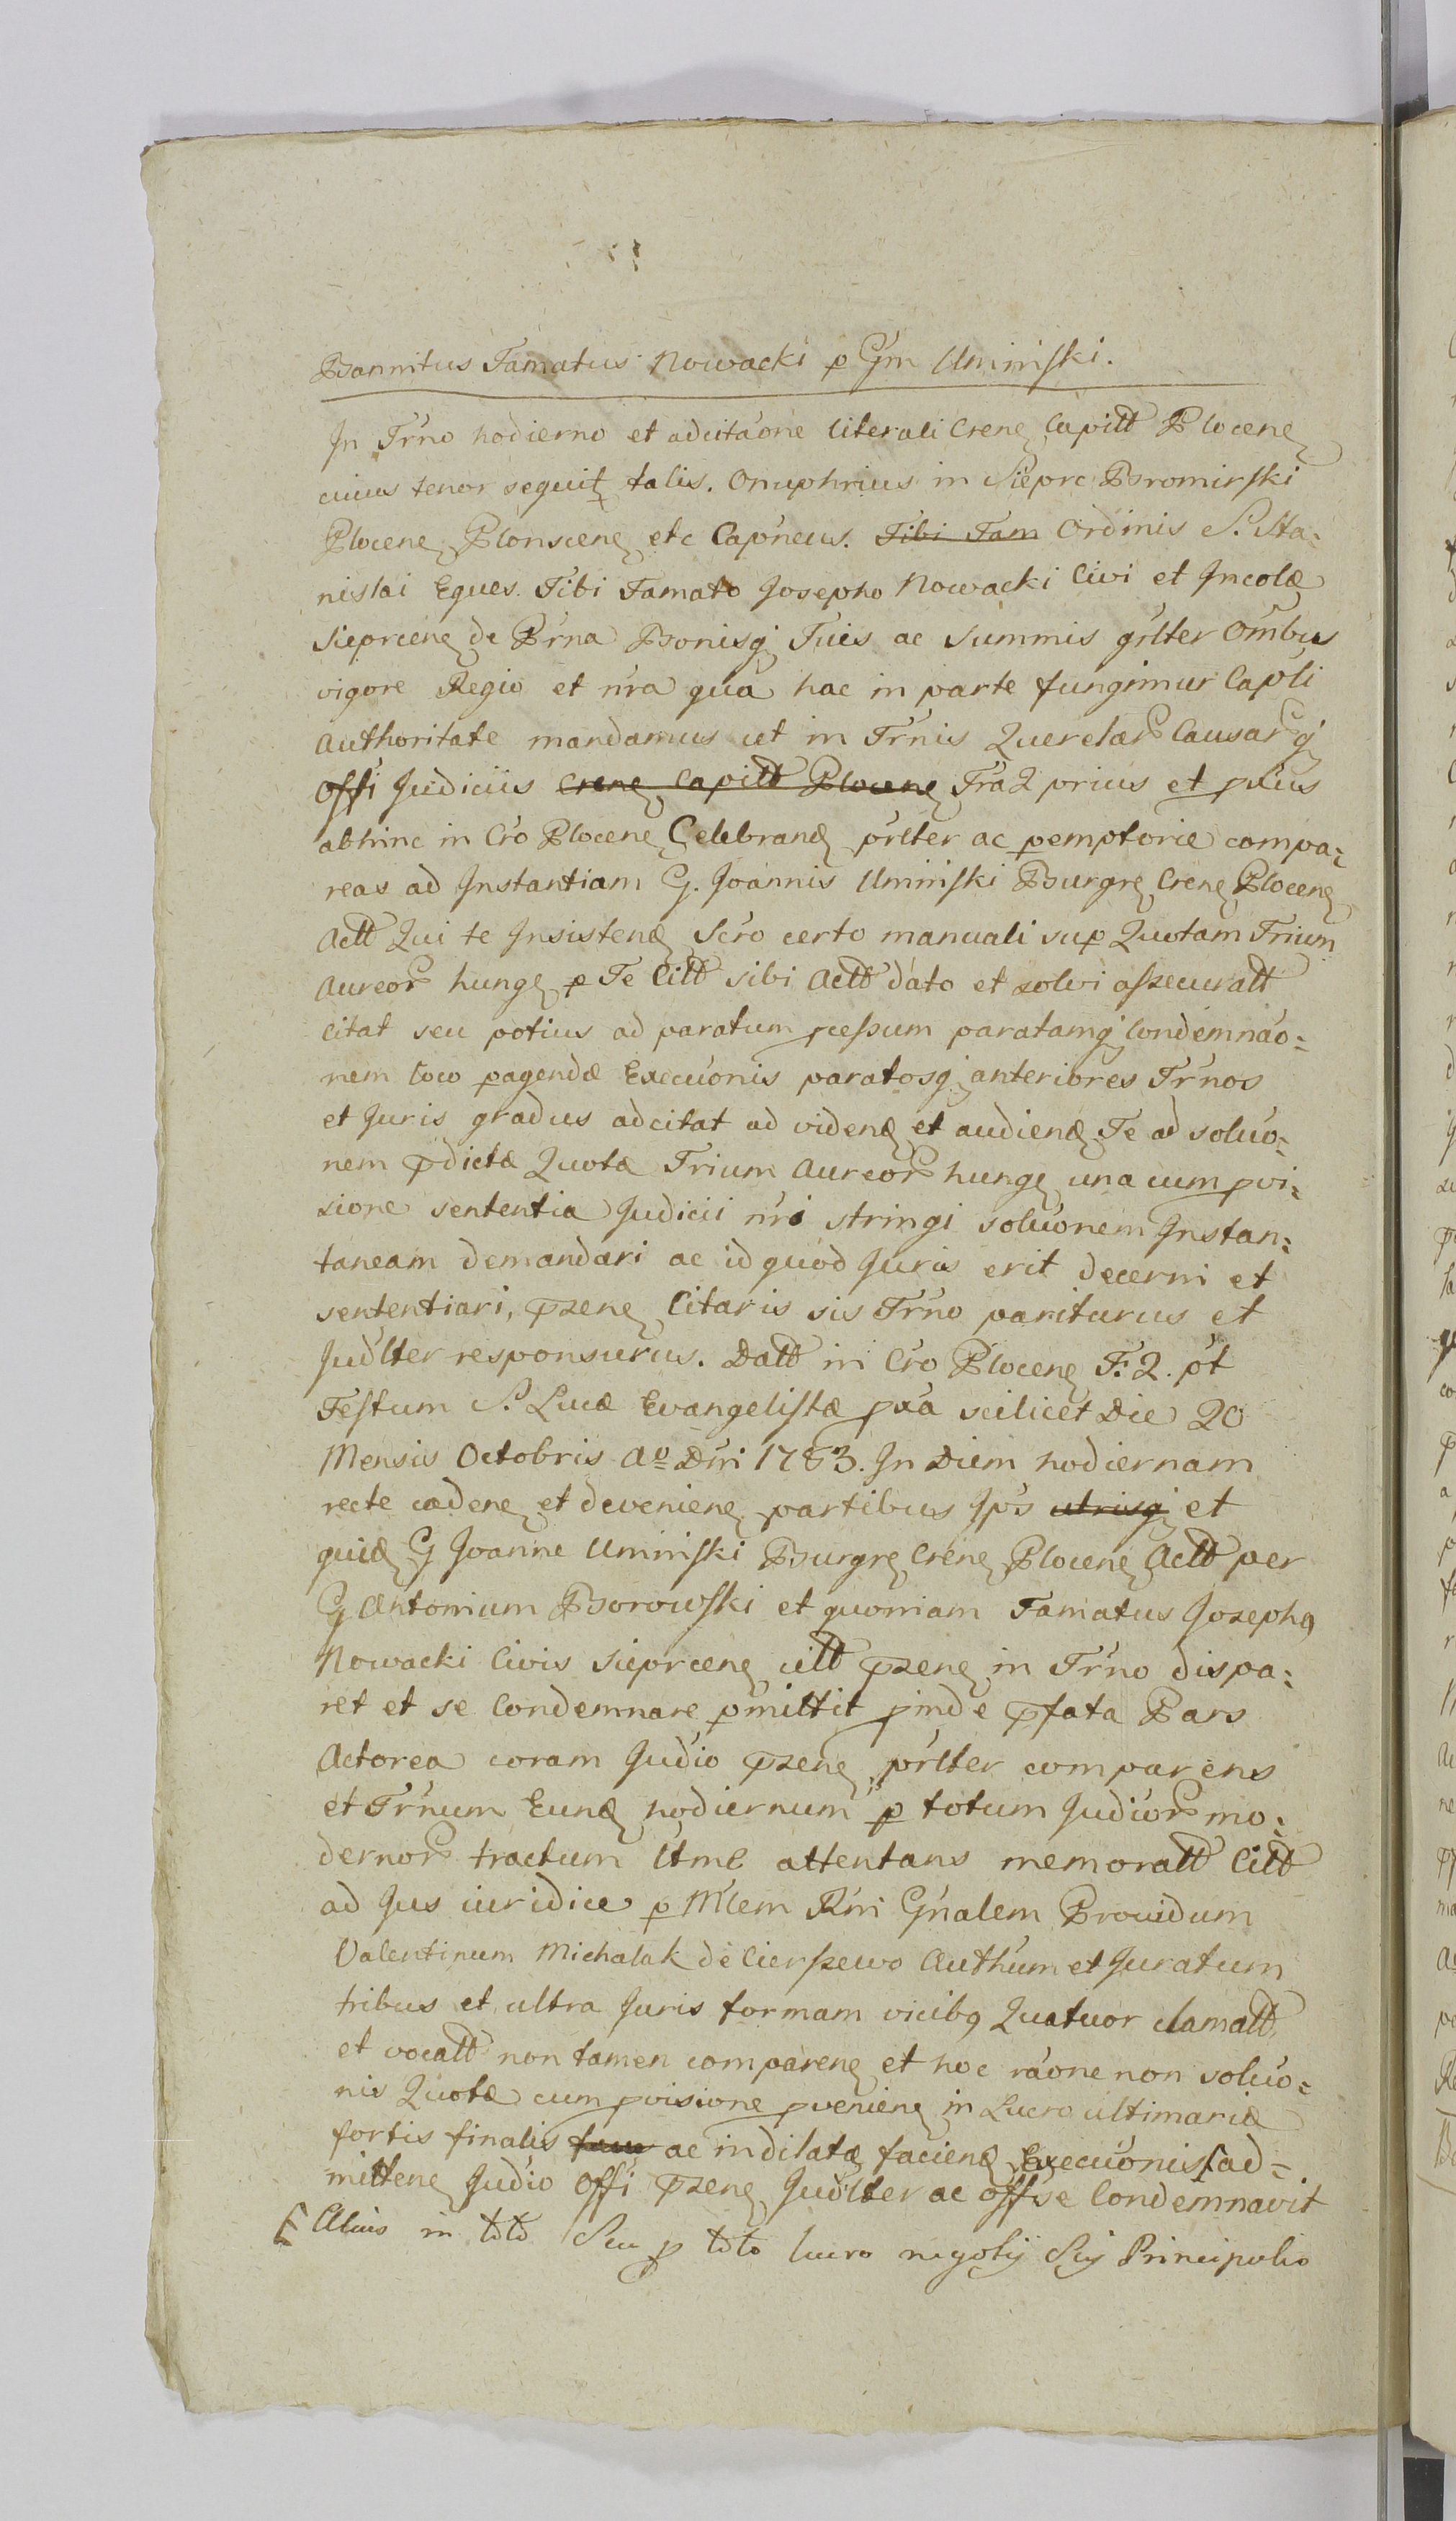 Bannitus Famatus Nowacki p Gm Uminſki.
In Trno hodierno et adcitaone literali Crene Capitt Plocene
cuius tenor sequit talis. Onuphrius in Siepre Bromirſki
Plocene Plonscene etc Capneus. Tibi Fam Ordinis S. Sta:
nislai Eques. Tibi Famato Josepho Nowacki Civi et Incolæ
Sieprcene de Prna Bonisq Tuis ac Summis grlter Ombus
vigore Regio et nra qua hac in parte fungimur Capli
Authoritate mandamus ut in Trnis Querelar Causarq
Offi Judiciis Crene Capitt Plocene Fra 2 prius et pxius
abhinc in Cro Plocene Celebrand prlter ac pemptorie compa:
reas ad Instantiam G. Joannis Uminſki Burgre Crene Plocene
Actt Qui te Insistend Scro certo manuali sup Quotam Trium
Aureor hung p Te Citt sibi Actt dato et solvi aſsecuratt
citat seu potius ad paratum pceſsum paratamq Condemnao:
nem loco pagendæ Execuonis paratosq anteriores Trnos
et Juris gradus adcitat ad videnđ et audienđ Te ad soluo:
nem pdictæ Quotæ Trium Aureor hung una cum pvi:
sione sententia Judicii nri stringi soluonem Instan:
taneam demandari ac id quod Juris erit decerni et
sententiari, pzene Citaris sis Trno pariturus et
Judlter responsurus. Datt in Cro Plocene F. 2. pt
Feſtum S. Lucæ Evangeliſtæ pxa scilicet Die 20
Mensis Octobris Ao Dni 1783. In Diem hodiernam
recte cadene et deveniene partibus Ips utrisq et
quid G Joanne Uminſki Burgre Crene Plocene Actt per
G Antonium Borowſki et quoniam Famatus Joseph9
Nowacki Civis Sieprcene citt pzene in Trno dispa:
ret et se Condemnare pmittit pinde pfata Pars
Actorea coram Judio pzene prlter comparens
et Trnum Eund hodiernum p totum Judior mo:
dernor tractum ltme attentans memoratt Citt
ad Jus iuridice p Mlem Rni Gnalem Providum
Valentinum Michalak de Cierſzewo Authum et Juratum
tribus et ultra Juris formam vicib9 Quatuor clamatt
et vocatt non tamen comparene et hoc raone non soluo:
nis Quotæ cum pvisione pveniene in Lucro ultimariæ
fortis finalis ac indilatæ faciend Execuonis ad:
mittene Judio Offi pzene Judlter ac offſe Condemnavit
Alius in toto Seu p toto lucro negotij Sui Principalis